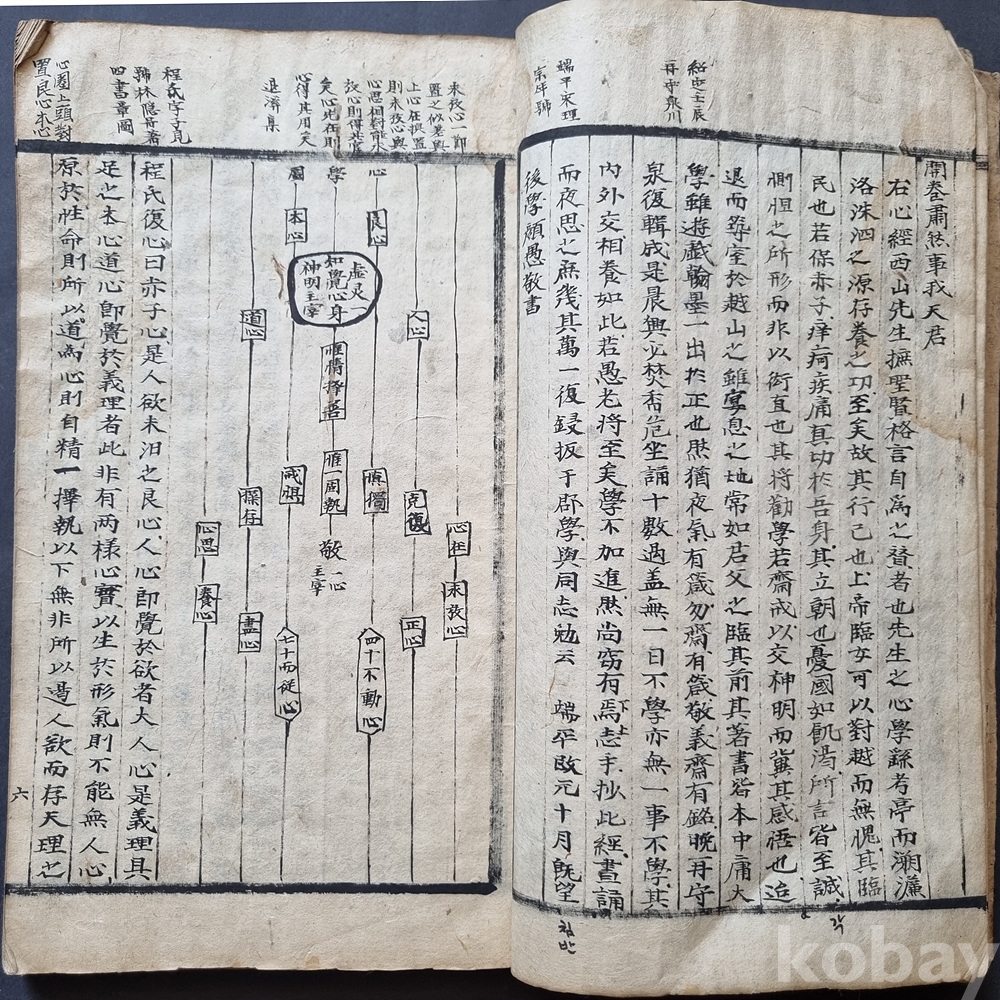 紹定壬辰
再守泉川
端平宋理
宗年號
開卷肅然事我天君
右心經西山先生撫聖賢格言自為之贊者也先生之心學繇考亭而溯濂
洛洙泗之源存養之功至矣故其行己也上帝臨女可以對越而無愧其臨
民也若保赤子痒疴疾痛真切於吾身其立朝也憂國如飢渴所言皆至誠
惻怛之所形而非以衒直也其將勸學若齋戒以交神明而冀其感悟也迨
退而築室於越山之雖宴息之地常如君父之臨其前其著書皆本中庸大
學雖遊戲翰墨一出於正也然猶夜氣有箴勿齋有箴敬義齋有銘晚再守
泉復輯成是晨興必焚香危坐誦十數過盖無一日不學亦無一事不學其
內外交相養如此若愚老將至矣學不加進然尚竊有焉志手抄此經晝誦
而夜思之庶幾其萬一復鋟板于郡學與同志勉云 端平改元十月旣望
後學顔愚敬書
각
침반
未發心一節
置之似差與
上心在操置
則未發心與
心思相對能求
放心則得其官
矣心此在則
心得其用矣
退濟集
程氏字子見
號林隱斉著
四書章圖
心圈上頭對
置良心本心
心
學
圖
良心
本心
虛灵
知覺心身
神明主宰
一
人心
道心
惟精擇善
惟一固執
敬
一心
主宰
慎獨
戒惧
克復
操存
心在
心思
未發心
養心
正心
盡心
四十不動心
七十而從心
程氏復心曰赤子心是人欲未汨之良心人心即覺於欲者大人心是義理具
足之本心道心即覺於義理者此非有两樣心實以生於形氣則不能無人心
原於性命則所以道為心則自精一擇執以下無非所以遏人欲而存天理之
六
kobay